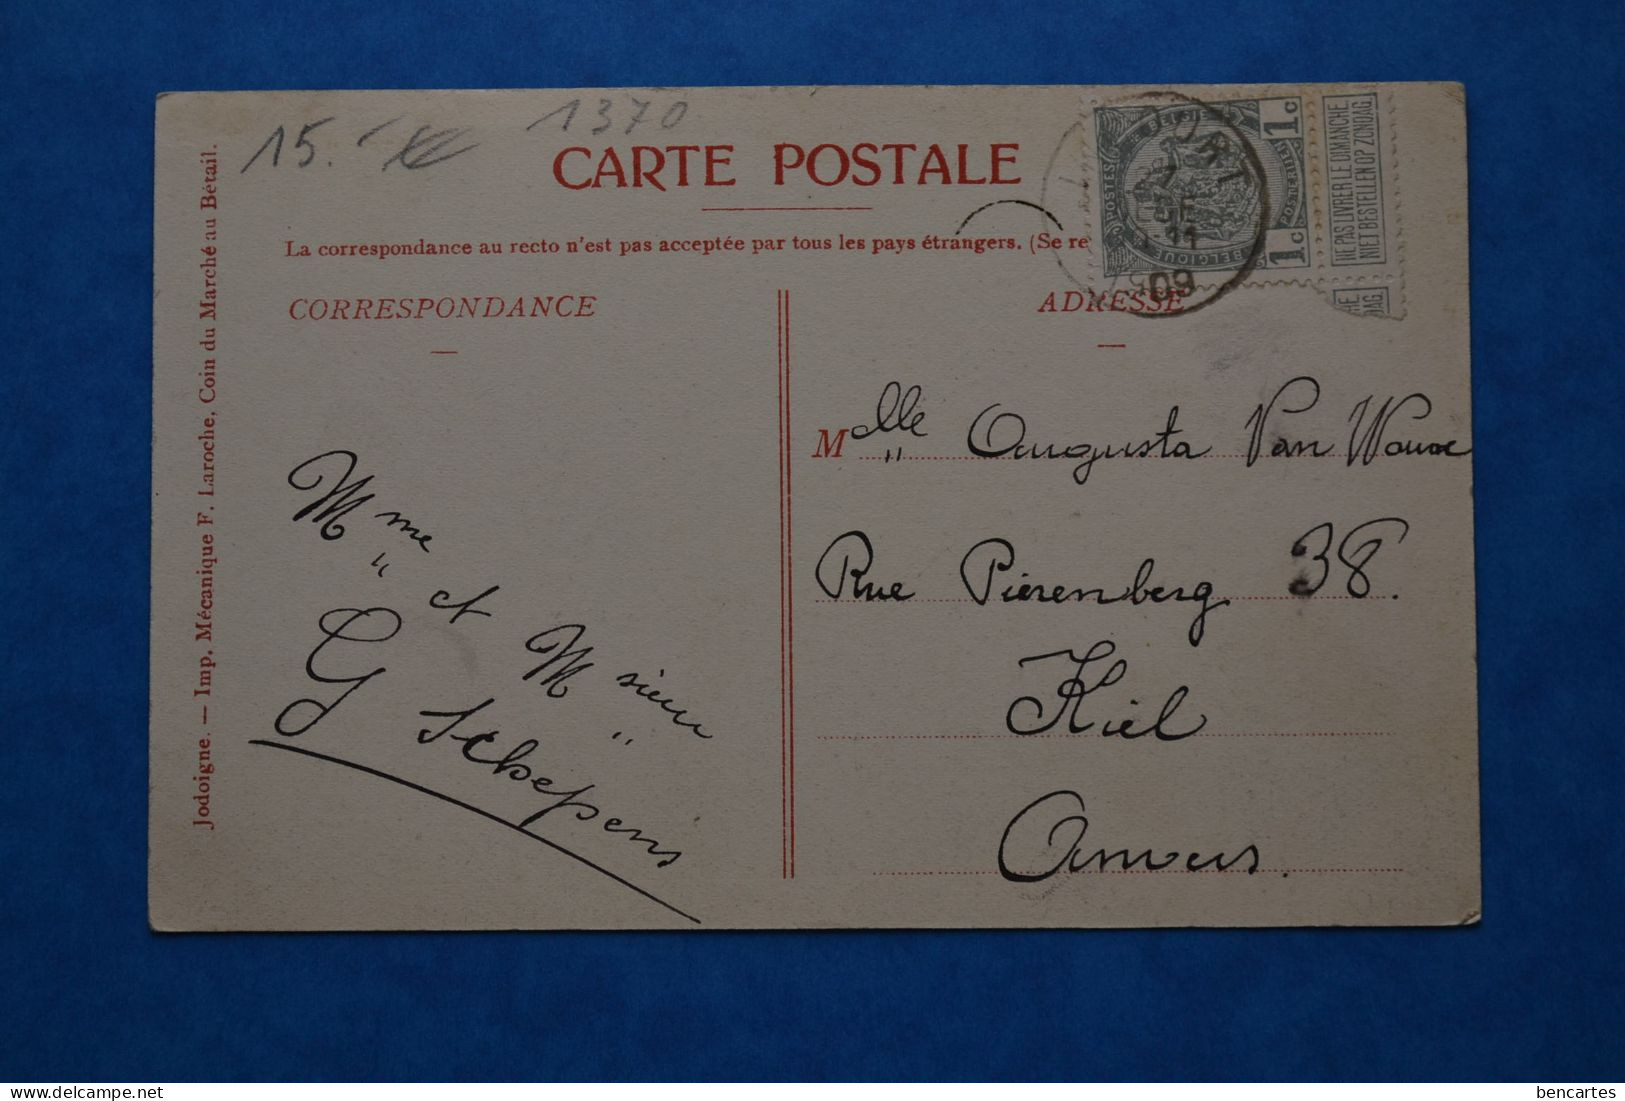 15.-
1370
CARTE POSTALE
La correspondance au recto n'est pas acceptée par tous les pays étrangers. (Se re
CORRESPONDANCE
ADRESSE
BELGIË
POSTES
POSTERIJEN
BELGIQUE
1c 1c
NE PAS LIVRER LE DIMANCHE
NIET BESTELLEN OP ZONDAG.
DE
11
09
Jodoigne. — Imp. Mécanique F. Laroche, Coin du Marché au Bétail.
Mme et Msieur
G Schepens
Mlle Augusta Van
Rue Pierenberg 38.
Kiel
Anvers.
bencartes